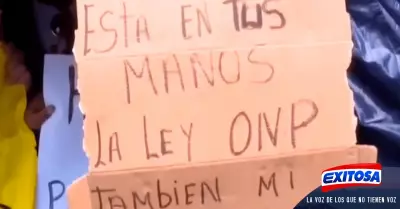 ESTA EN TUS
MANOS
LA LEY ONP
TAMBIEN MI
EXITOSA
LA VOZ DE LOS QUE NO TIENEN VOZ